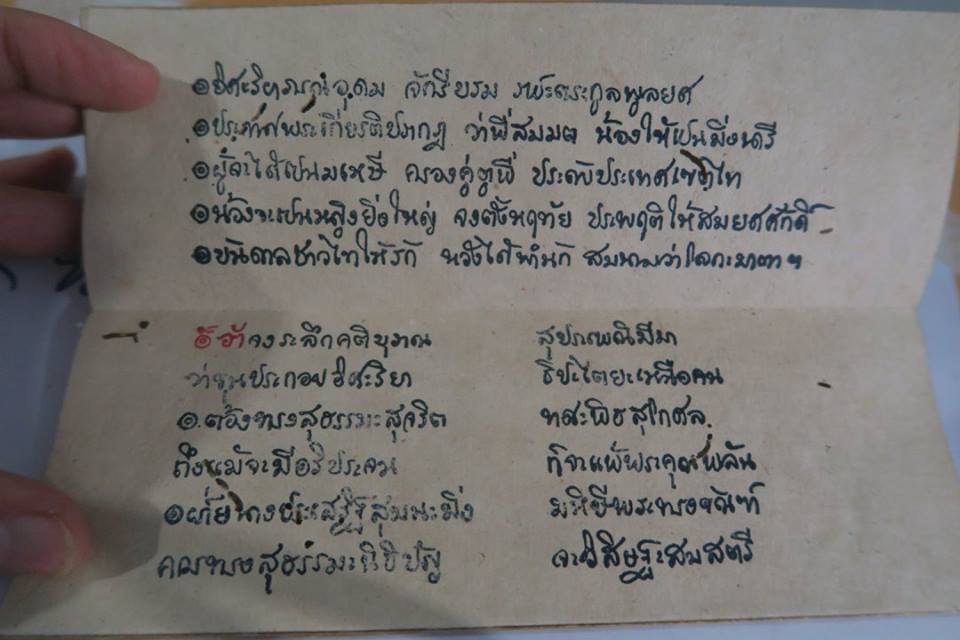 ๏อิศะริยาภรณ์อุดม จักรีบรม พระตระกูลพูลยศ
๏ประกาศพระเกียรติปรากฏ ว่าพี่สมมต น้องให้เป็นมิ่งนารี
๏ผู้จะได้เป็นมเหษี ครองคู่ตูพี่ ประดับประเทศเขตไท
๏น้องจะเป็นหญิงยิ่งใหญ่ จงตั้งหฤทัย ประพฤติให้สมยศศักดิ์
๏บันดาลชาวไทให้รัก หวังได้พำนัก สมนามว่าโลกะมาตา ฯ
จงระลึกคติบุราณ สุประเพณิมีมา
ว่าขุนประกอบอิศะริยา ธิปะไตยะเหนือคน
๏ต้องทรงสุธรรมะสุจริต ทศะพิธสุโกศล
ถึงแม้จะมีอริประจน ก็จะแพ้พระคุณพลัน
๏ประเสริฐสุมนะมิ่ง มหิษีพระทรงขัณฑ์
ควรทรงสุธรรมะนิธิปัญ จะวิสิษฐะสมสตรี